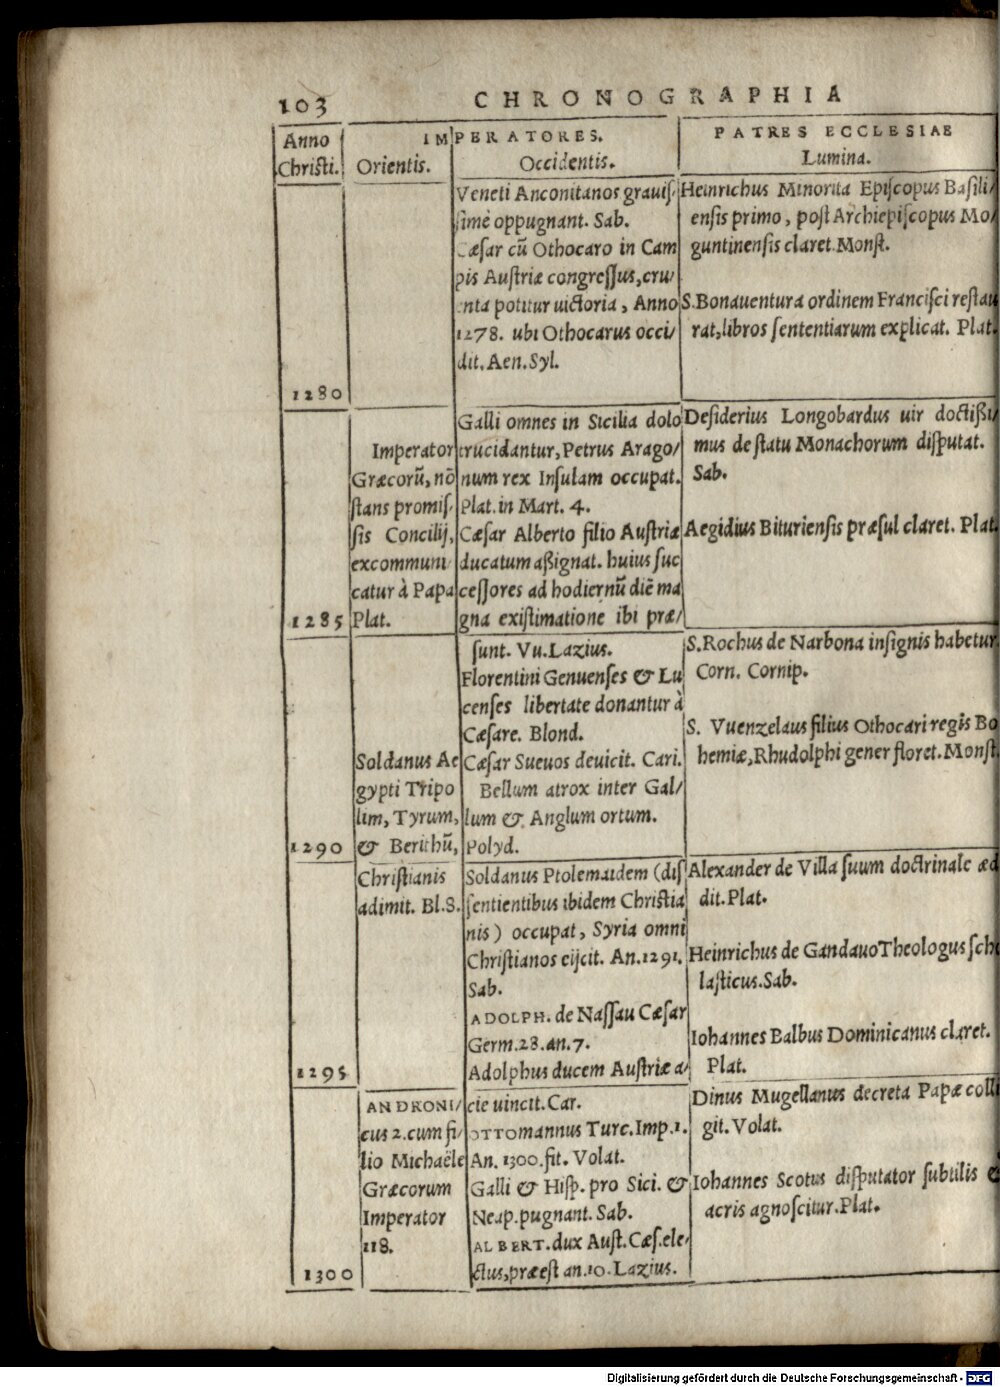 103 CHRONOGRAPHIA
Anno
Christi.
IMPERATORES.
Orientis. Occidentis.
PATRES ECCLESIAE
Lumina.
Veneti Anconitanos grauiſ-
ſimè oppugnant. Sab.
Cæſar cū Othocaro in Cam
pis Auſtriæ congreſſus, cru/
enta potitur uictoria, Anno
1278. ubi Othocarus occi/
dit. Aen. Syl.
Heinrichus Minorita Epiſcopus Baſili/
enſis primo, poſt Archiepiſcopus Mo/
guntinenſis claret. Monſt.
S. Bonauentura ordinem Franciſci reſtau
rat, libros ſententiarum explicat. Plat.
1280
Imperator
Græcorū, nō
ſtans promiſ-
ſis Concilij,
excommuni/
catur à Papa
Plat.
Galli omnes in Sicilia dolo
trucidantur, Petrus Arago/
num rex Inſulam occupat.
Plat. in Mart. 4.
Cæſar Alberto filio Auſtriæ
ducatum aßignat. huius ſuc
ceſſores ad hodiernū diē ma
gna exiſtimatione ibi præ/
Deſiderius Longobardus uir doctißi/
mus de ſtatu Monachorum diſputat.
Sab.
Aegidius Biturienſis præſul claret. Plat.
1285
Soldanus Ae
gypti Tripo
lim, Tyrum,
& Berithū,
ſunt. Vu. Lazius.
Florentini Genuenſes & Lu
cenſes libertate donantur à
Cæſare. Blond.
Cæſar Sueuos deuicit. Cari.
Bellum atrox inter Gal/
lum & Anglum ortum.
Polyd.
S. Rochus de Narbona inſignis habetur.
Corn. Cornip.
S. Vuenzelaus filius Othocari regis Bo
hemiæ, Rhudolphi gener floret. Monſt.
1290
Chriſtianis
adimit. Bl. S.
Soldanus Ptolemaidem (diſ
ſentientibus ibidem Chriſtia
nis) occupat, Syria omni
Chriſtianos eijcit. An. 1291.
Sab.
ADOLPH. de Naſſau Cæſar
Germ. 28. an. 7.
Adolphus ducem Auſtriæ a/
Alexander de Villa ſuum doctrinale æd
dit. Plat.
Heinrichus de Gandauo Theologus ſcho
laſticus. Sab.
Iohannes Balbus Dominicanus claret.
Plat.
1295
ANDRONI/
cus 2. cum fi/
lio Michaële
Græcorum
Imperator
118.
cie uincit. Car.
OTTOmannus Turc. Imp. 1.
An. 1300. fit. Volat.
Galli & Hiſp. pro Sici. &
Neap. pugnant. Sab.
ALBERT. dux Auſt. Cæſ. ele/
ctus, præeſt an. 10. Lazius.
Dinus Mugellanus decreta Papæ colli
git. Volat.
Iohannes Scotus diſputator ſubtilis &
acris agnoſcitur. Plat.
1300
Digitalisierung gefördert durch die Deutsche Forschungsgemeinschaft - DFG